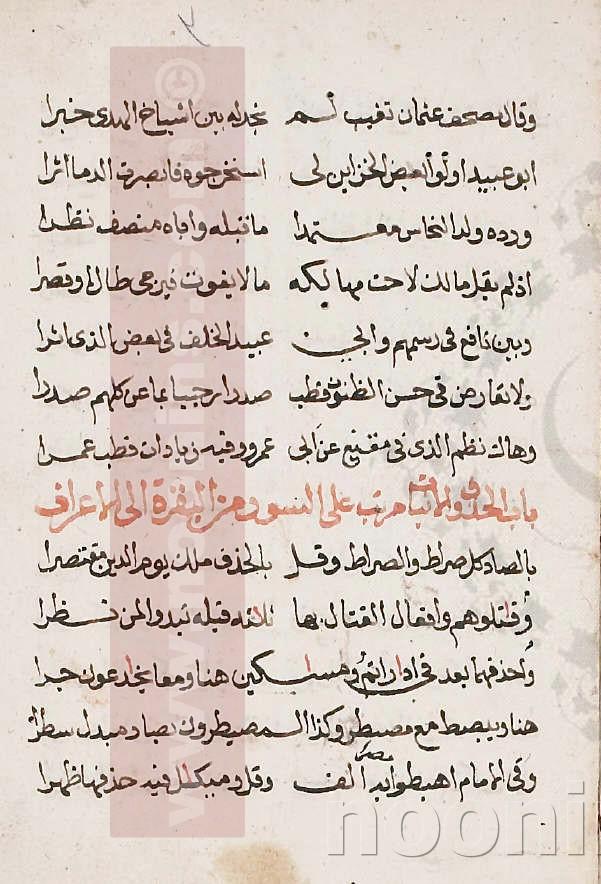 ٣
وقال مصحف عثمان تغيب لم نجد له بين اشياخ الهدى خبرا
ابو عبيد اولوا بعض الخزاين لي استخرجوه فابصرت الدما اثرا
ورده ولد النحاس معتمدا ما قبله واباه منصف نظرا
اذ لم يقل مالك لاحت مهالكه ما لا يفوت فيرجى طال او قصرا
وبين نافع في رسمهم وابي عبيد الخلف في بعض الذي اثرا
ولا تعارض في حسن الظنون فطب صدرا رحيبا بما عن كلهم صدرا
وهاك نظم الذي في مقنع عن ابي عمرو وفيه زيادات فطب عمرا
باب الحذف والاثبات مرتب على السور من البقرة الى الاعراف
بالصاد كل صراط والصراط وقل بالحذف ملك يوم الدين مقتصرا
وقتلوهم وافعال القتال بها ثلاثة قبله تبدو لمن نظرا
واحذفهما بعد في اداراتم ومساكين هنا ومعا يخدعون جرا
هنا ويبصط مع مصيطر وكذا المصيطرون بصاد مبدل سطرا
وفي الامام اهبطوا مصرا به الف وقل وميكال فيه حذفها ظهرا
nooni